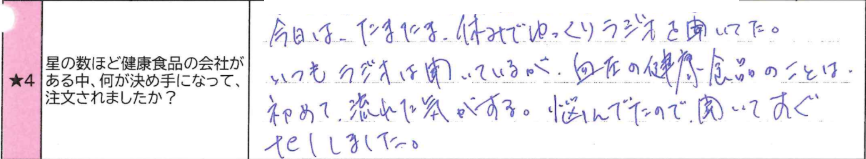 ★4
星の数ほど健康食品の会社が
ある中、何が決め手になって、
注文されましたか？
今日は、たまたま、休みでゆっくりラジオを聞いてた。
いつもラジオは聞いているが、血圧の健康食品のことは、
初めて、流れた気がする。悩んでたので、聞いてすぐ
telしました。